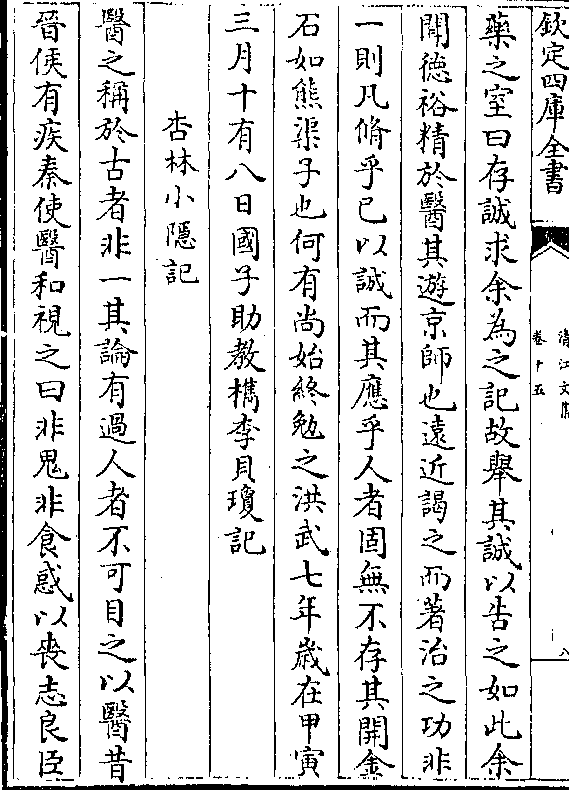 欽定四庫全書
清江文集
卷十五
八
藥之室曰存誠求余為之記故舉其誠以告之如此余
聞德裕精於醫其遊京師也遠近謁之而著治之功非
一則凡脩乎已以誠而其應乎人者固無不存其開金
石如熊渠子也何有尚始終勉之洪武七年歲在甲寅
三月十有八日國子助教檇李貝瓊記
杏林小隱記
醫之稱於古者非一其論有過人者不可目之以醫昔
晉侯有疾秦使醫和視之曰非鬼非食惑以喪志良臣